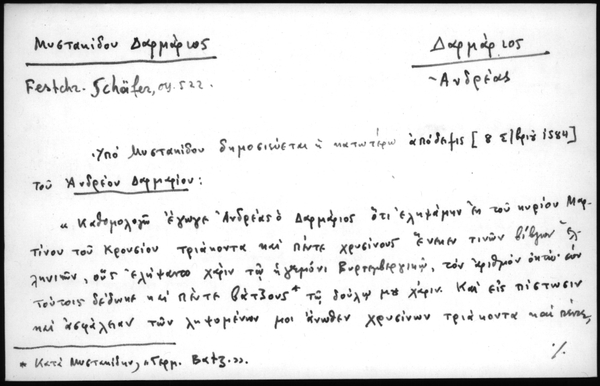 Μυστακίδου Δαρμάριος
Δαρμάριος
Festchr. Schäfer, σ. 522.
~Ανδρέας
Ὑπό Μυστακίδου δημοσιεύεται ἡ κατωτέρω ἀπόδειξις [8 Σ/βρίου 1584]
τοῦ Ἀνδρέου Δαρμαρίου:
« Καθομολογῶ ἔγωγε Ἀνδρέας ὁ Δαρμάριος ὅτι ἐληψάμην ἐκ τοῦ κυρίου Μαρ-
τίνου τοῦ Κρουσίου τριάκοντα καί πέντε χρυσίνους ἕνεκεν τινῶν βίβλων ἑλ-
ληνικῶν, οὓς ἐλήψαντο χάριν τῷ ἡγεμόνι Βυρτεμβεργικῷ, τόν ἀριθμόν ὀκτώ· σύν
τούτοις δέδωκε καί πέντε βάτζους* τῷ δούλῳ μου χάριν. Καί εἰς πίστωσιν
καί ἀσφάλειαν τῶν ληψομένων μοι ἄνωθεν χρυσίνων τριάκοντα καί πέντε,
* Κατά Μυστακίδην, «Γερμ. Batz.».
·/.